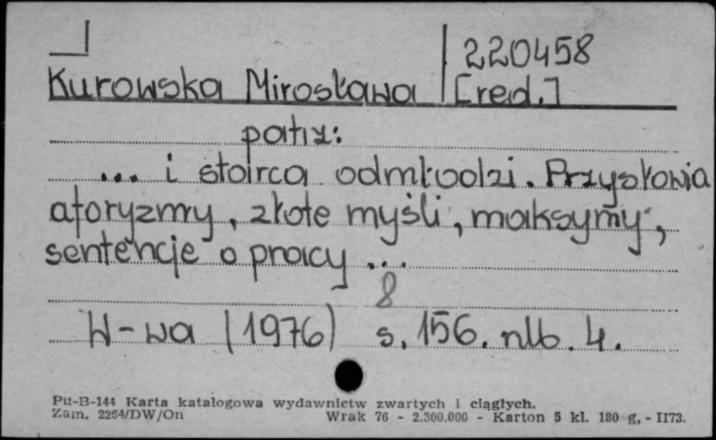 220458
Kurowska Mirosława [red.]
patrz:
... i starca odmłodzi. Przysłowia
aforyzmy, złote myśli, maksymy,
sentencje o pracy ...
8
W-wa (1976) s. 156. nlb. 4.
Pu-B-144 Karta katalogowa wydawnictw zwartych i ciągłych.
Zam. 2264/DW/On Wrak 76 - 2.300.000 - Karton 5 kl. 180 g, - II73.